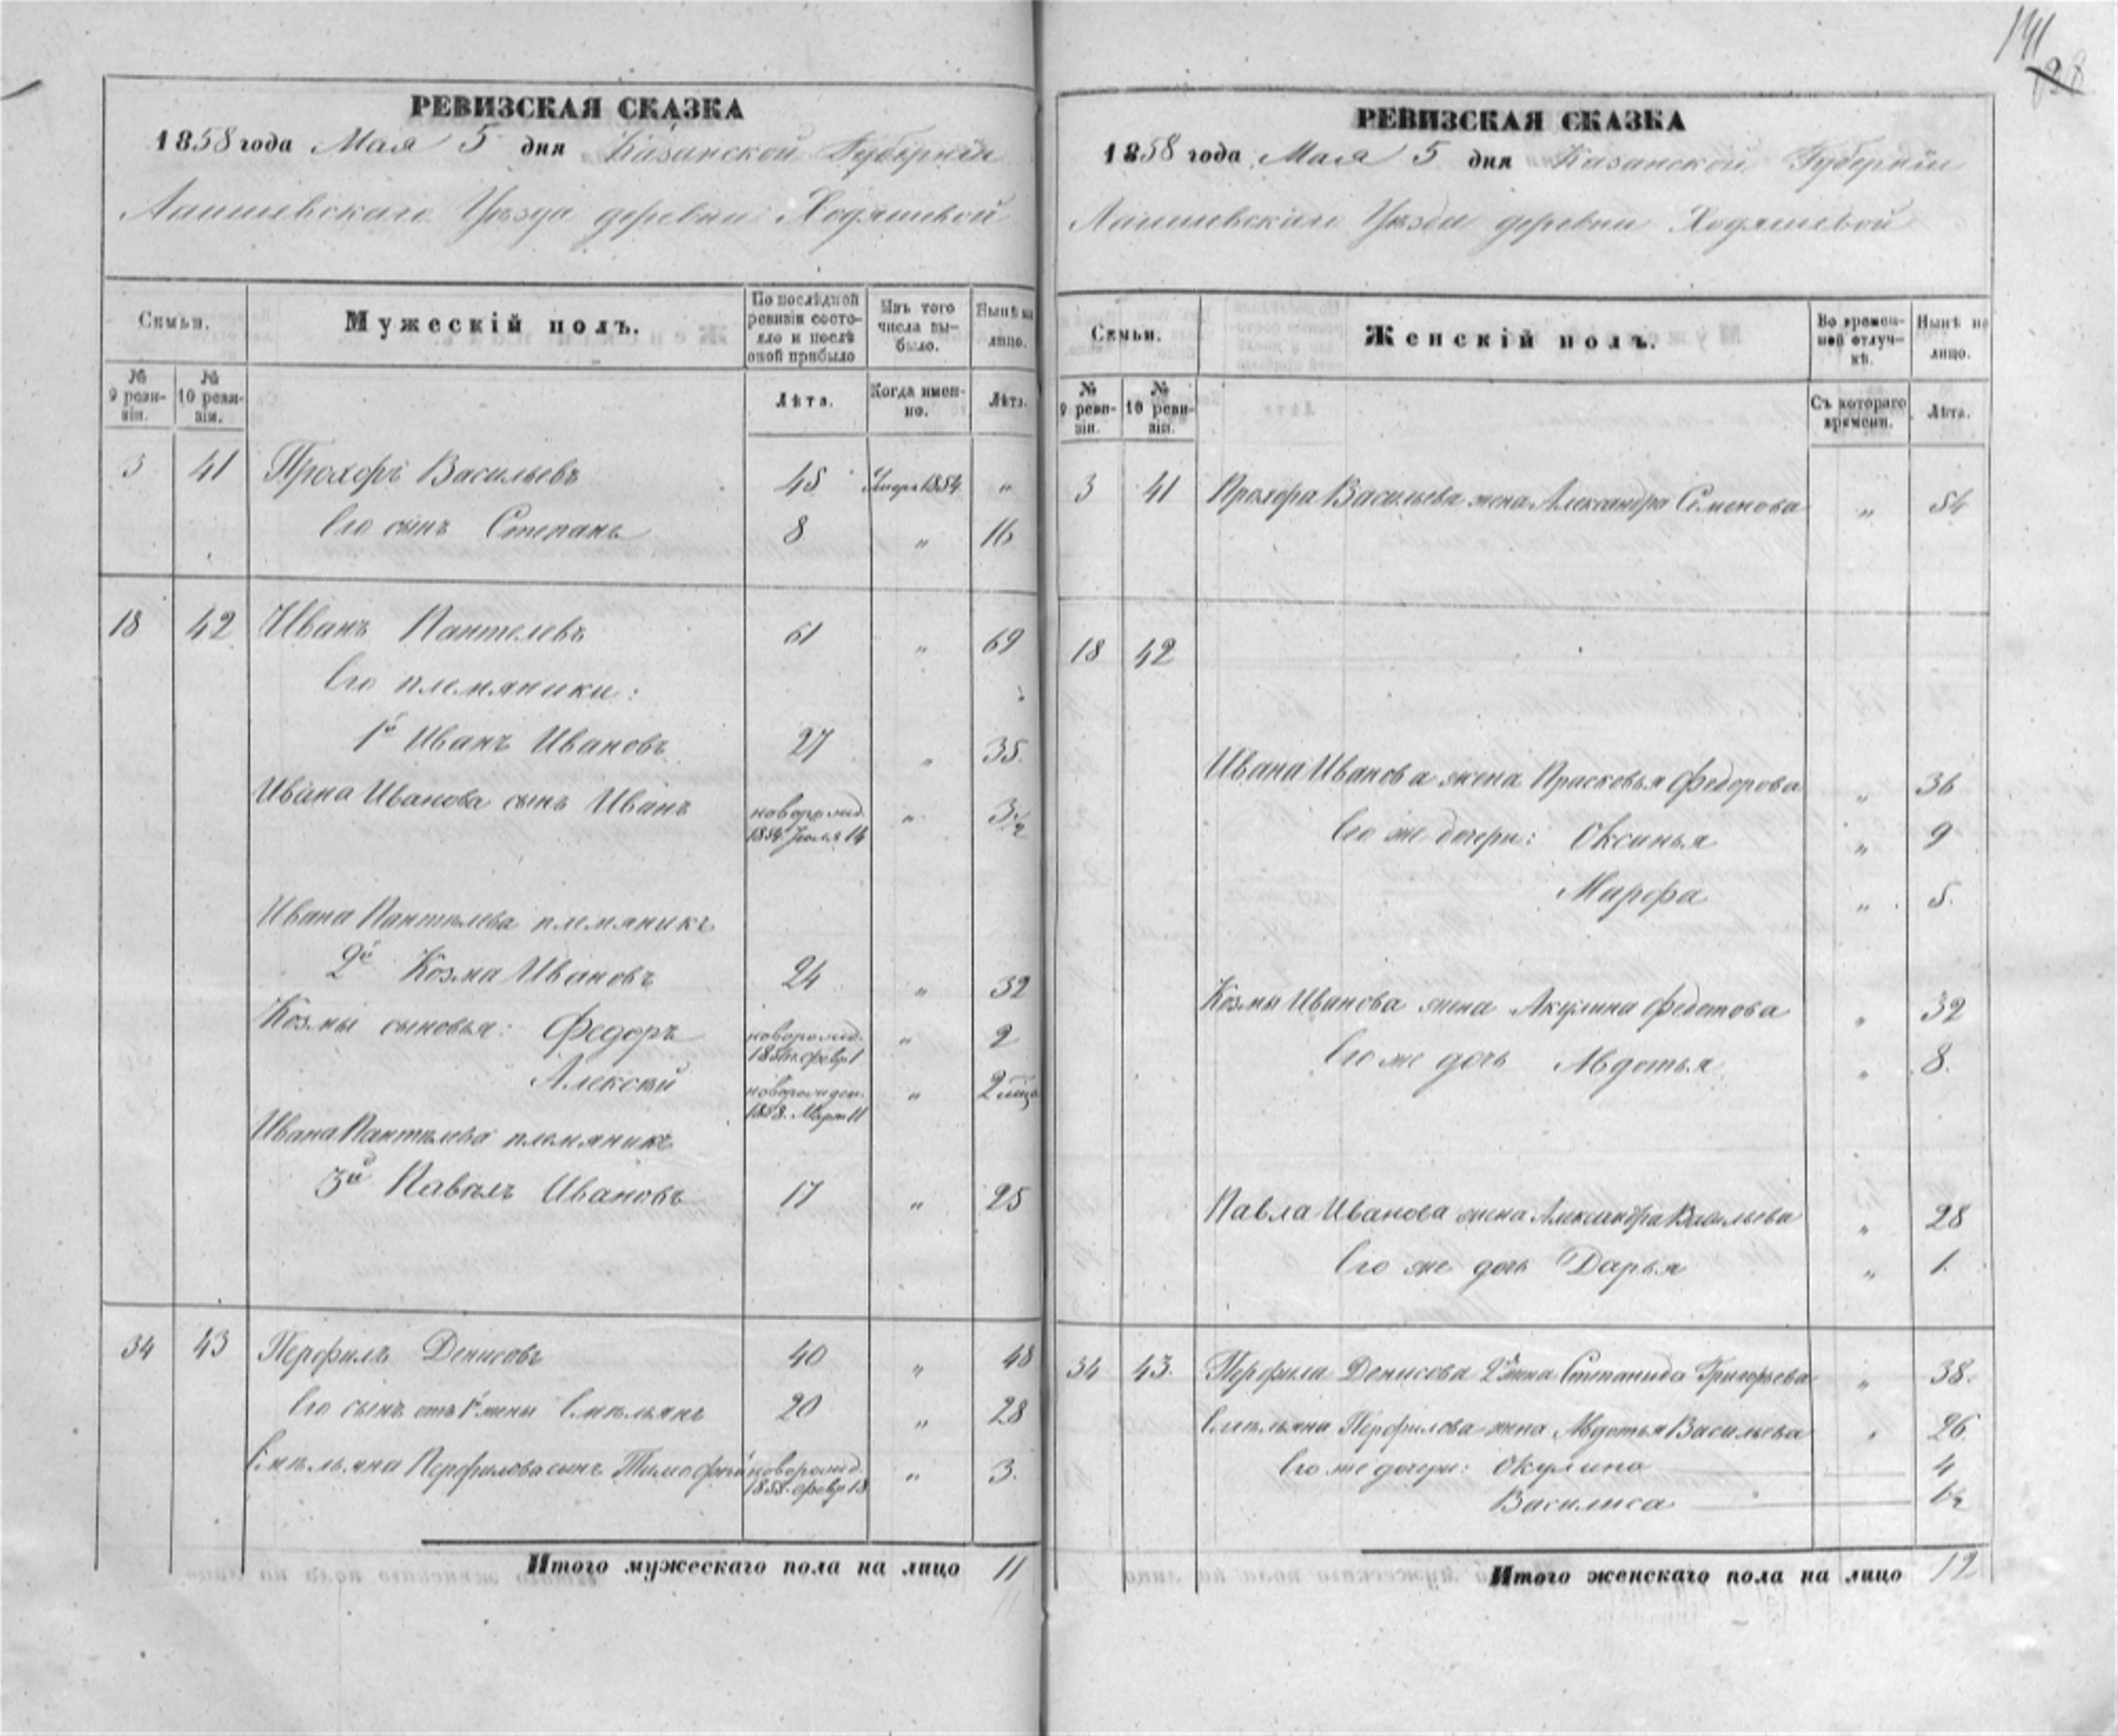 141
РЕВИЗСКАЯ СКАЗКА
1858 года Мая 5 дня Казанской Губернiи
Лаишевскаго Уѣзда деревни Ходяшевой
Семьи.
Мужескій полъ.
По послѣдной ревизіи состояло и послѣ оной прибыло
Изъ того числа выбыло.
Нынѣ на лицо.
№ 9 ревизіи.
№ 10 ревизіи.
Лѣта.
Когда именно.
Лѣта.
3 41 Прохоръ Васильевъ 45 Умеръ 1854 "
Его сынъ Степанъ 8 " 16
18 42 Иванъ Пантелевъ 61 " 69
Его племяники:
1й Иванъ Ивановъ 27 " 35.
Ивана Иванова сынъ Иванъ новорожд. 1854 Іюля 14 " 3½
Ивана Пантелева племяникъ
2й Козма Ивановъ 24 " 32
Козмы сыновья: Федоръ новорожд. февр 1 " 2
Алексѣй новорожден. 1858. Март 11 " 2 мѣца
Ивана Пантелева племяникъ
3й Павелъ Ивановъ 17 " 25
34 43 Перфилъ Денисовъ 40 " 48
Его сынъ отъ 1й жены Емельянъ 20 " 28
Емельяна Перфилова сынъ Тимофей новорожд. 1855. февр 18 " 3.
Итого мужескаго пола на лицо 11
РЕВИЗСКАЯ СКАЗКА
1858 года Мая 5 дня Казанской Губернiи
Лаишевскаго Уѣзда деревни Ходяшевой
Семьи.
Женскій полъ.
Во временной отлучкѣ.
Нынѣ на лицо.
№ 9 ревизіи.
№ 10 ревизіи.
Съ котораго времени.
Лѣта.
3 41 Прохора Васильева жена Александра Семенова " 54
18 42
Ивана Иванова жена Прасковья Федорова " 36
Его же дочери: Оксинья " 9
Марфа " 5.
Козмы Иванова жена Акулина Федотова " 32
Его же дочь Авдотья " 8.
Павла Иванова жена Александра Васильева " 28
Его же дочь Дарья " 1.
34 43. Перфила Денисова 2я жена Степанида Григорьева " 38.
Емельяна Перфилова жена Авдотья Васильева " 26
Его же дочери: Окулина 4
Василиса ½
Итого женскаго пола на лицо 12